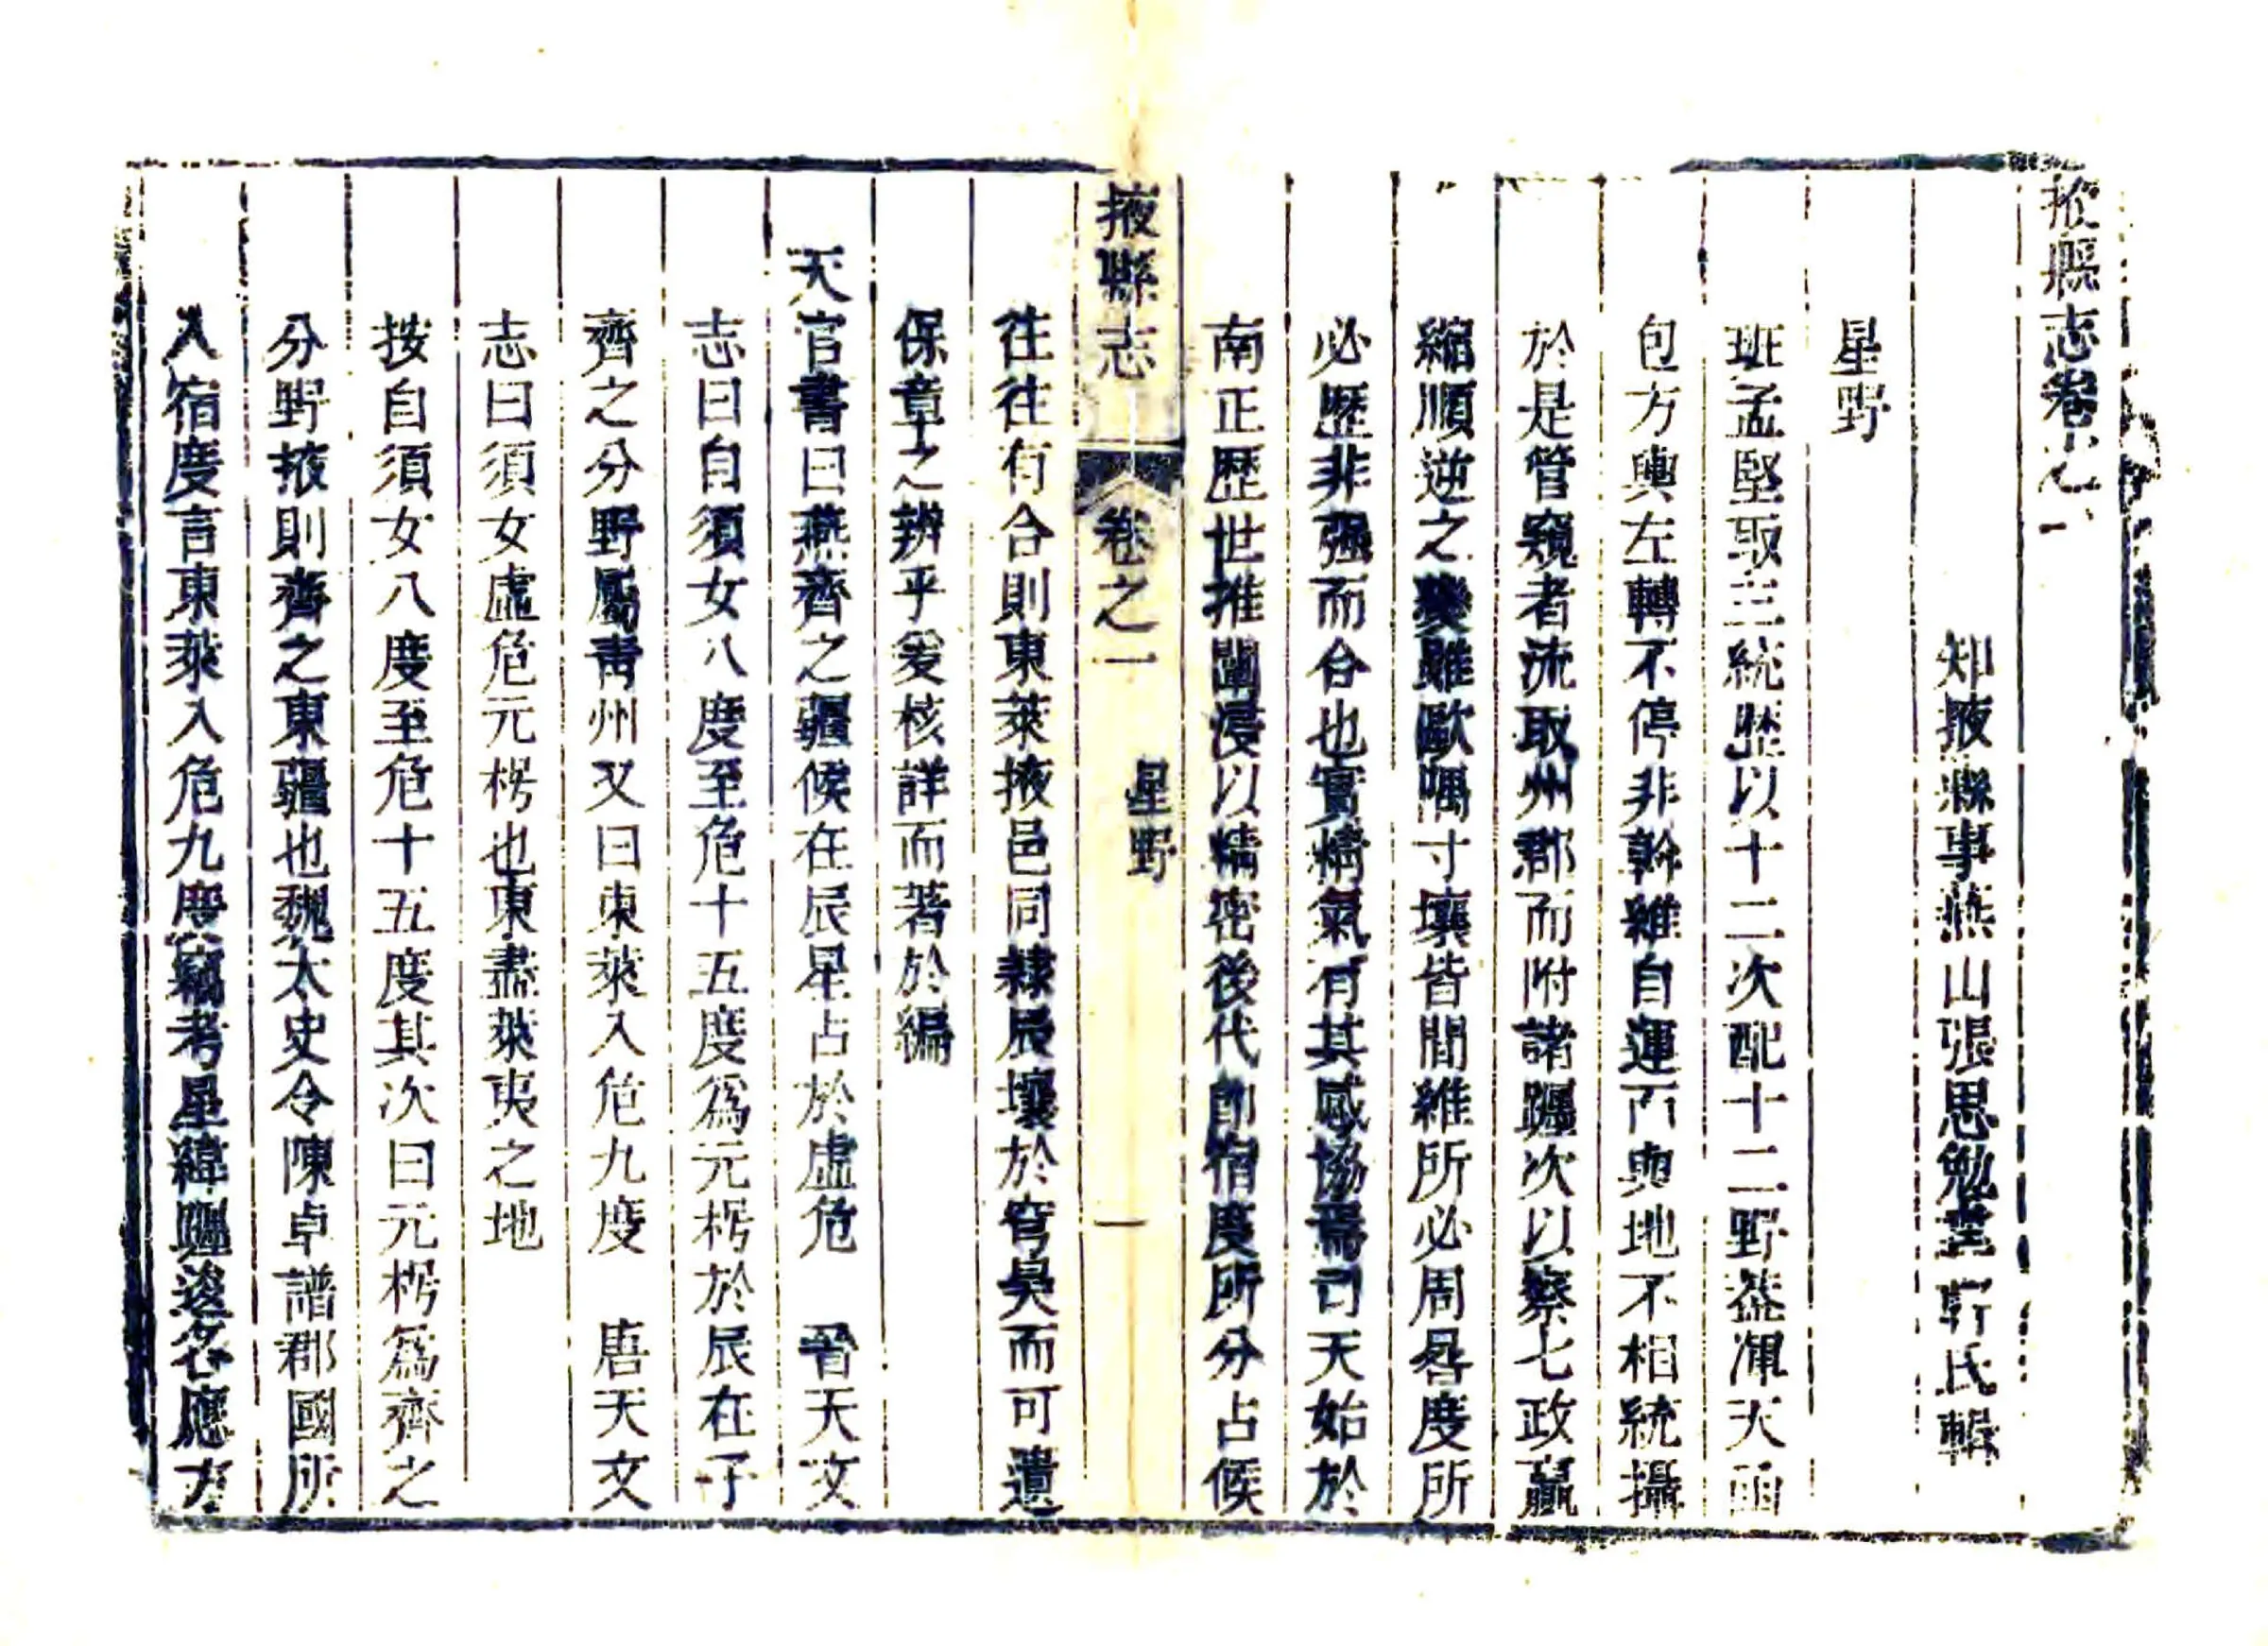 掖縣志卷之一
知掖縣事燕山張思勉堂軒氏輯
星野
班孟堅取三統歷以十二次配十二野葢渾天函
包方輿左轉不停非幹維自運而輿地不相統攝
於是管窺者流取州郡而附諸躔次以察七政贏
縮順逆之變雖歐隅寸壤皆間維所必周晷度所
必歷非强而合也實精氣有其感協焉司天始於
南正歴世推闡浸以精密後代即宿度所分占候
掖縣志
卷之一
星野
一
往往有合則東萊掖邑同隷辰壤於穹昊而可遺
保章之辨乎爰核詳而著於編
天官書曰燕齊之疆候在辰星占於虛危 晉天文
志曰自須女八度至危十五度爲元枵於辰在子
齊之分野屬青州又曰東萊入危九度 唐天文
志曰須女虛危元枵也東盡萊夷之地
按自須女八度至危十五度其次曰元枵爲齊之
分野掖則齊之東疆也魏太史令陳卓譜郡國所
入宿度言東萊入危九度竊考星緯躔逡各應方